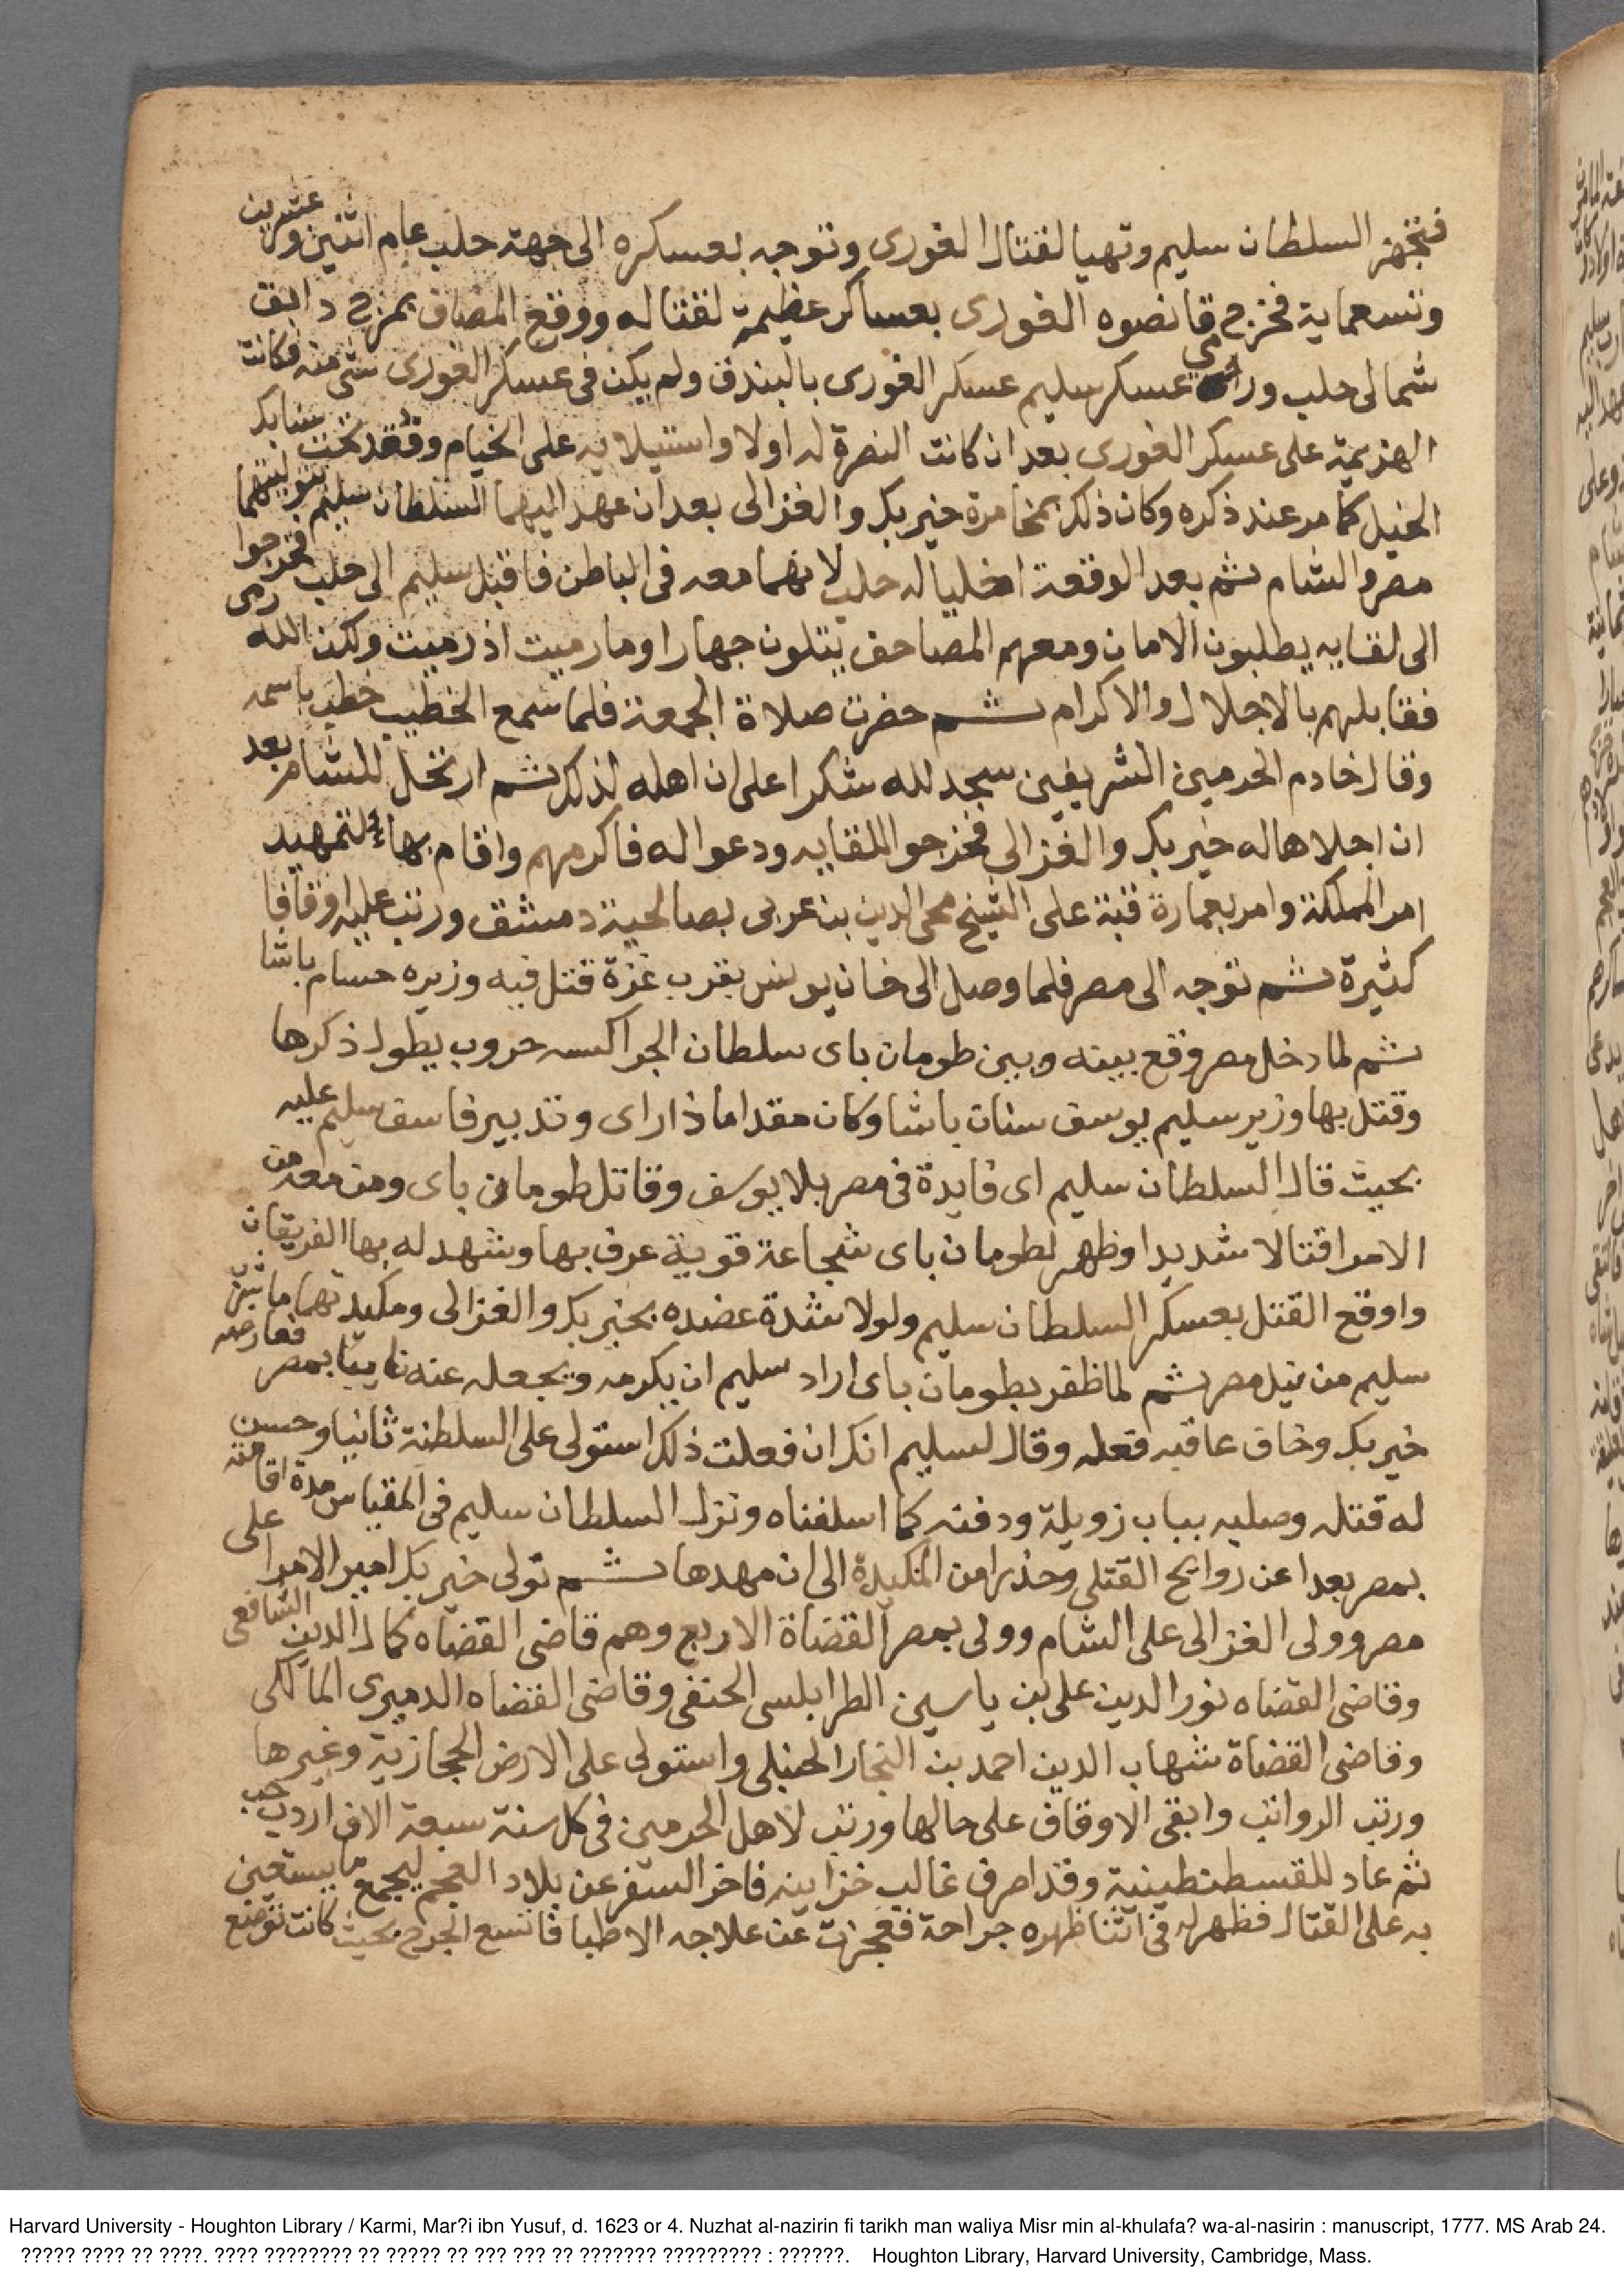 فتجهز السلطان سليم وتهيا لقتال الغورى وتوجه بعسكره الى جهة حلب عام اثنين وعشرين
وتسعماية فخرج قانصوه الغورى بعساكر عظيمة لقتاله ووقع المصاف بمرج دابق
شمالى حلب ورمى عسكر سليم عسكر الغورى بالبندق ولم يكن فى عسكر الغورى شى منه فكانت
الهزيمة على عسكر الغورى بعد ان كانت النصرة له اولا واستيلايه على الخيام وفقد تحت سنابك
الخيل كما مر عند ذكره وكان ذلك بمخامرة خير بك والغزالى بعد ان عهد اليهما السلطان سليم بتوليتهما
مصر والشام ثم بعد الوقعة اخليا له حلب لانهما معه فى الباطن فاقبل سليم الى حلب فخرجوا
الى لقايه يطلبون الامان ومعهم المصاحف يتلون جهارا وما رميت اذ رميت ولكن الله رمى
فقابلهم بالاجلال والاكرام ثم حضرت صلاة الجمعة فلما سمع الخطيب خطب باسمه
وقال خادم الحرمين الشريفين سجد لله شكرا على ان اهله لذلك ثم ارتحل للشام بعد
ان اجلاها له خير بك والغزالى فخرجوا للقايه ودعوا له فاكرمهم واقام بها لتمهيد
امر المملكة وامر بعمارة قبة على الشيخ محى الدين بن عربى بصالحية دمشق ورتب عليها اوقافا
كثيرة ثم توجه الى مصر فلما وصل الى خان يونس بقرب غزة قتل فيه وزيره حسام باشا
ثم لما دخل مصر وقع بينه وبين طومان باى سلطان الجراكسه حروب يطول ذكرها
وقتل بها وزير سليم يوسف سنان باشا وكان مقداما ذا راى وتدبير فاسف سليم عليه
بحيث قال السلطان سليم اى فايدة فى مصر بلا يوسف وقاتل طومان باى ومن معه من
الامرا قتالا شديدا وظهر لطومان باى شجاعة قوية عرف بها وشهد له بها الفريقان
واوقع القتل بعسكر السلطان سليم ولولا شدة عضده بخير بك والغزالى ومكيدتهما ما تمكن
سليم من نيل مصر ثم لما ظفر بطومان باى اراد سليم ان يكرمه ويجعله عنه نايبا بمصر فعارضه
خير بك وخاف عاقبه فعله وقال لسليم انك ان فعلت ذلك استولى على السلطنة ثانيا وحسن
له قتله وصلبه بباب زويلة ودفنه كما اسلفناه ونزل السلطان سليم فى المقياس مدة اقامته
بمصر بعدا عن روايح القتلى وحذرا من المكيدة الى ان مهدها ثم تولى خير بك امير الامرا على
مصر وولى الغزالى على الشام وولى بمصر القضاة الاربع وهم قاضى القضاه كمال الدين الشافعى
وقاضى القضاه نور الدين على بن ياسين الطرابلسى الحنفى وقاضى القضاه الدميرى المالكى
وقاضى القضاة شهاب الدين احمد بن النجار الحنبلى واستولى على الارض الحجازية وغيرها
ورتب الرواتب وابقى الاوقاف على حالها ورتب لاهل الحرمين فى كل سنة سبعة الاف اردب حب
ثم عاد للقسطنطينية وقد اصرف غالب خزاينه فاخر السفر عن بلاد العجم ليجمع ما يستعين
به على القتال فظهر له فى اثنا ظهره جراحة فعجزت عن علاجه الاطبا فاتسع الجرح بحيث كانت توضع
Harvard University - Houghton Library / Karmi, Mar?i ibn Yusuf, d. 1623 or 4. Nuzhat al-nazirin fi tarikh man waliya Misr min al-khulafa? wa-al-nasirin : manuscript, 1777. MS Arab 24.
????? ???? ?? ????. ???? ???????? ?? ????? ?? ??? ??? ?? ??????? ????????? : ??????. Houghton Library, Harvard University, Cambridge, Mass.